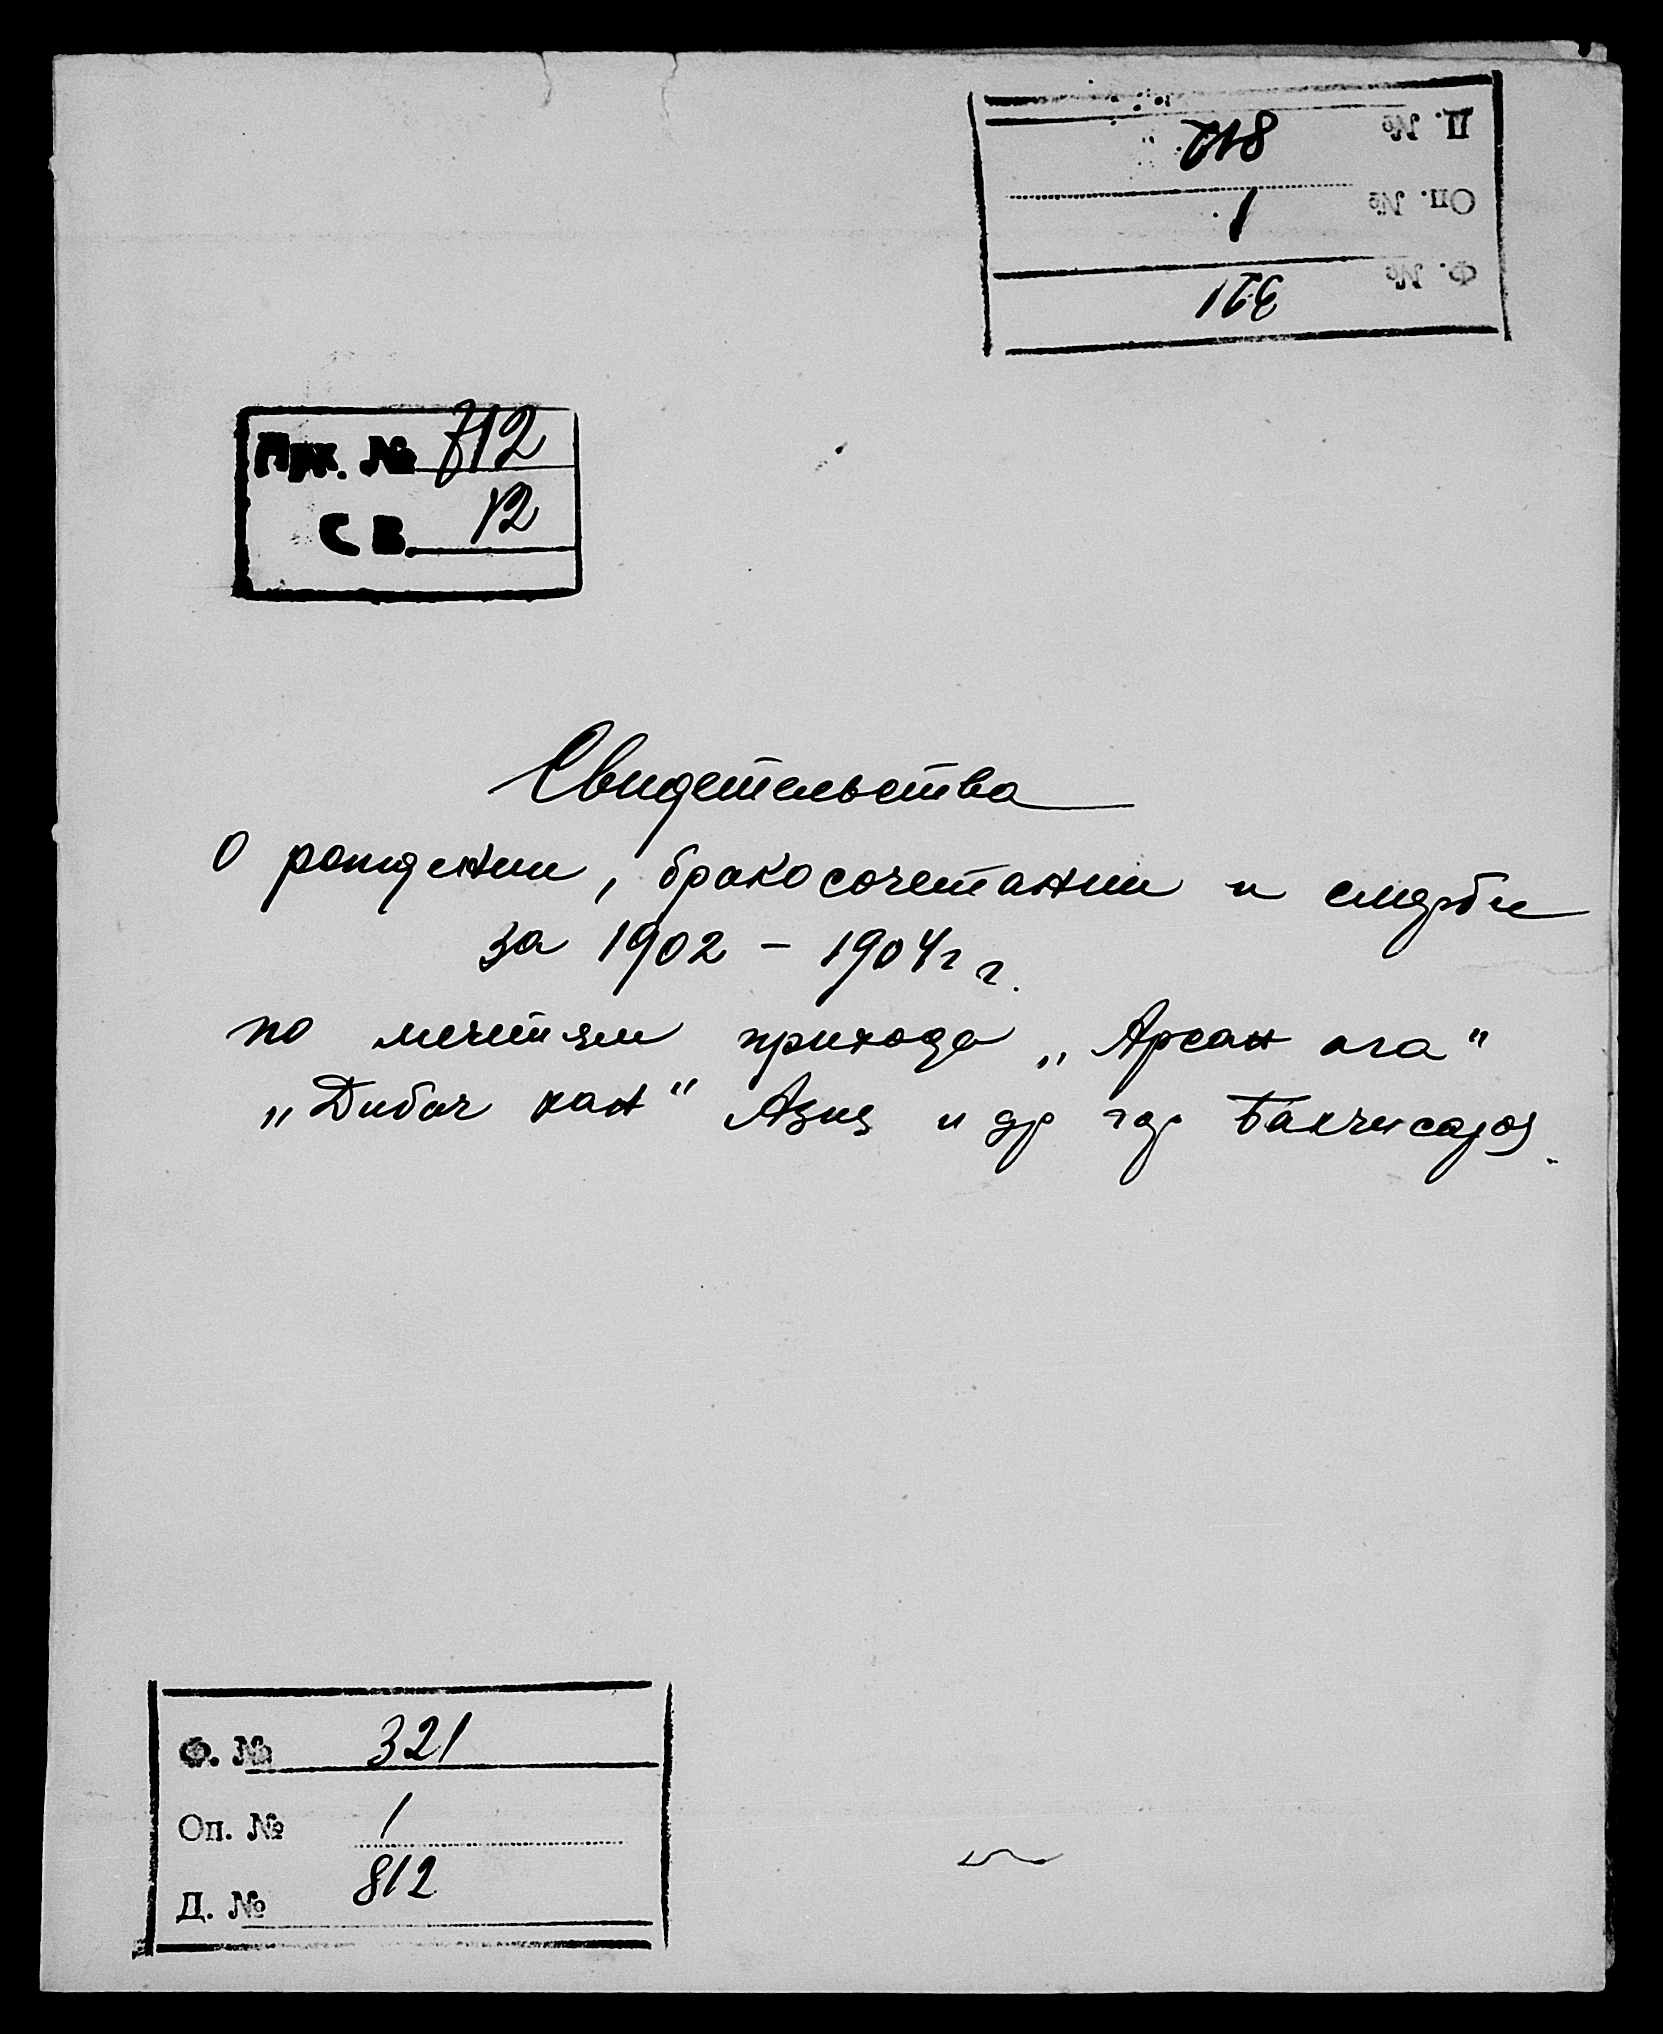 Д. № 812
Оп. № 1
Ф. № 321
Арх. № 812
СВ. 12
Свидетельства
О рождении, бракосочетании и смерти
за 1902 - 1904 г г.
по мечетям прихода „Арсан ага"
„Дибач хан" Азиз и др гор Бахчисарая.
Ф. № 321
Оп. № 1
Д. № 812